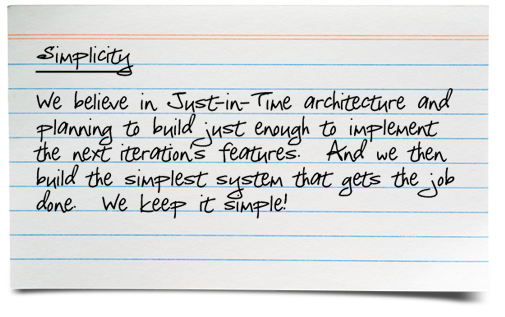 Simplicity
We believe in Just-in-Time architecture and
planning to build just enough to implement
the next iteration's features.  And we then
build the simplest system that gets the job
done.  We keep it simple!